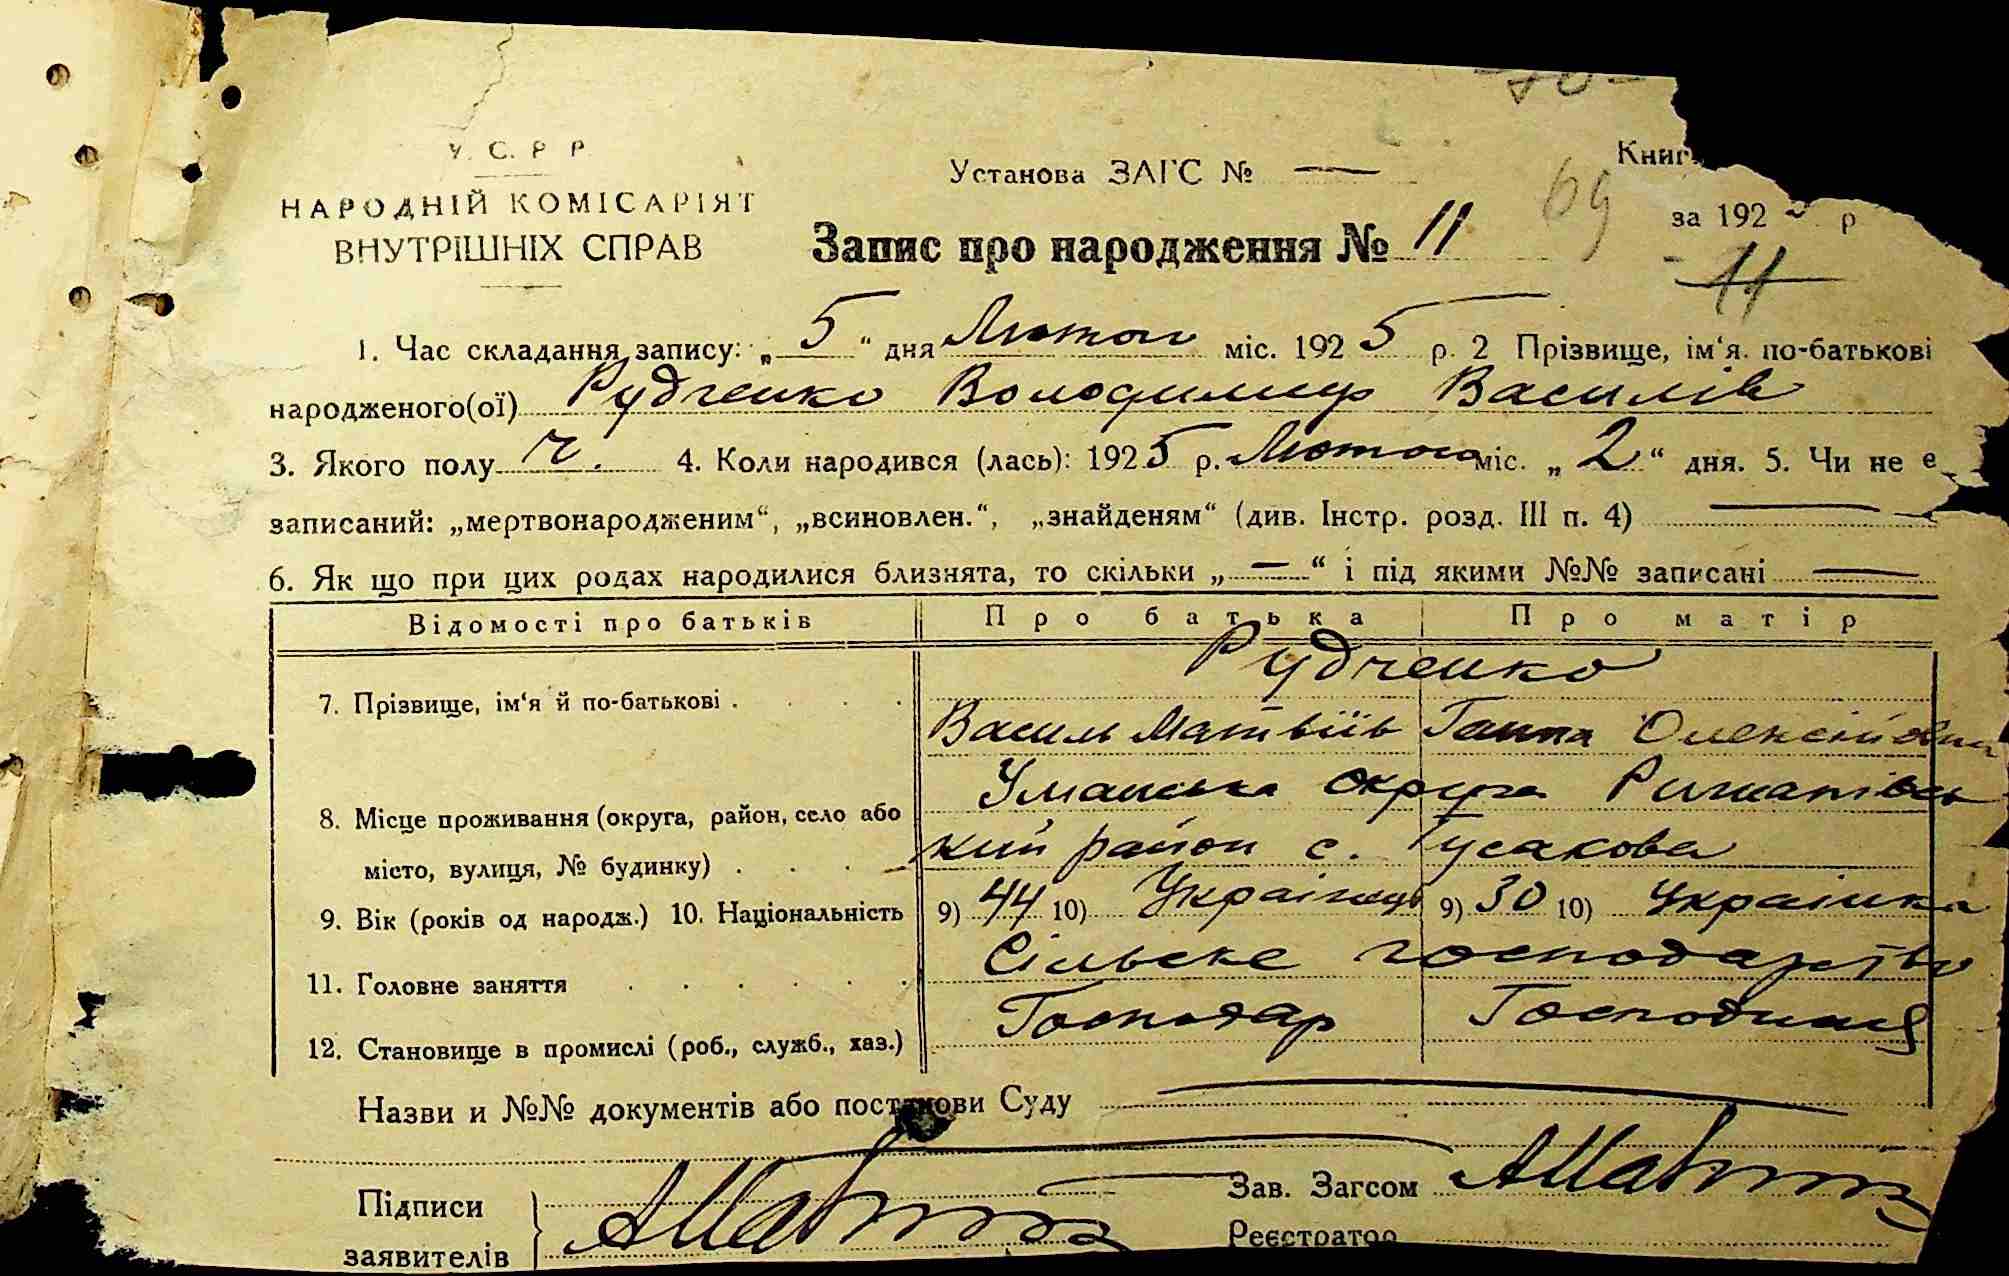 У. С. Р. Р.
НАРОДНІЙ КОМІСАРІЯТ
ВНУТРІШНІХ СПРАВ
Установа ЗАГС № —
Книг
69
за 192 р
Запис про народження № 11
11
1. Час складання запису: „5“ дня Лютого міс. 1925 р. 2 Прізвище, ім‘я. по-батькові
народженого(ої) Рудченко Володимир Василів
3. Якого полу ч. 4. Коли народився (лась): 1925 р. Лютого міс. „2“ дня. 5. Чи не е
записаний: „мертвонародженим“, „всиновлен.“, „знайденям“ (див. Інстр. розд. III п. 4) —
6. Як що при цих родах народилися близнята, то скільки „—“ і під якими №№ записані —
Відомості про батьків Про батька Про матір
Рудченко
7. Прізвище, ім‘я й по-батькові . . . .
Василь Матвіїв Ганна Олексіївна
Уманська округа
8. Місце проживання (округа, район, село або
кий район с. Гусакова
місто, вулиця, № будинку) . . . .
9. Вік (років од народж.) 10. Національність 9) 44 10) Українець 9) 30 10) Українка
Сільске господарство
11. Головне заняття . . . . . .
Господар Господиня
12. Становище в промислі (роб., служб., хаз.)
Назви и №№ документів або постанови Суду —
Підписи
заявителів
Зав. Загсом
Реєстратор